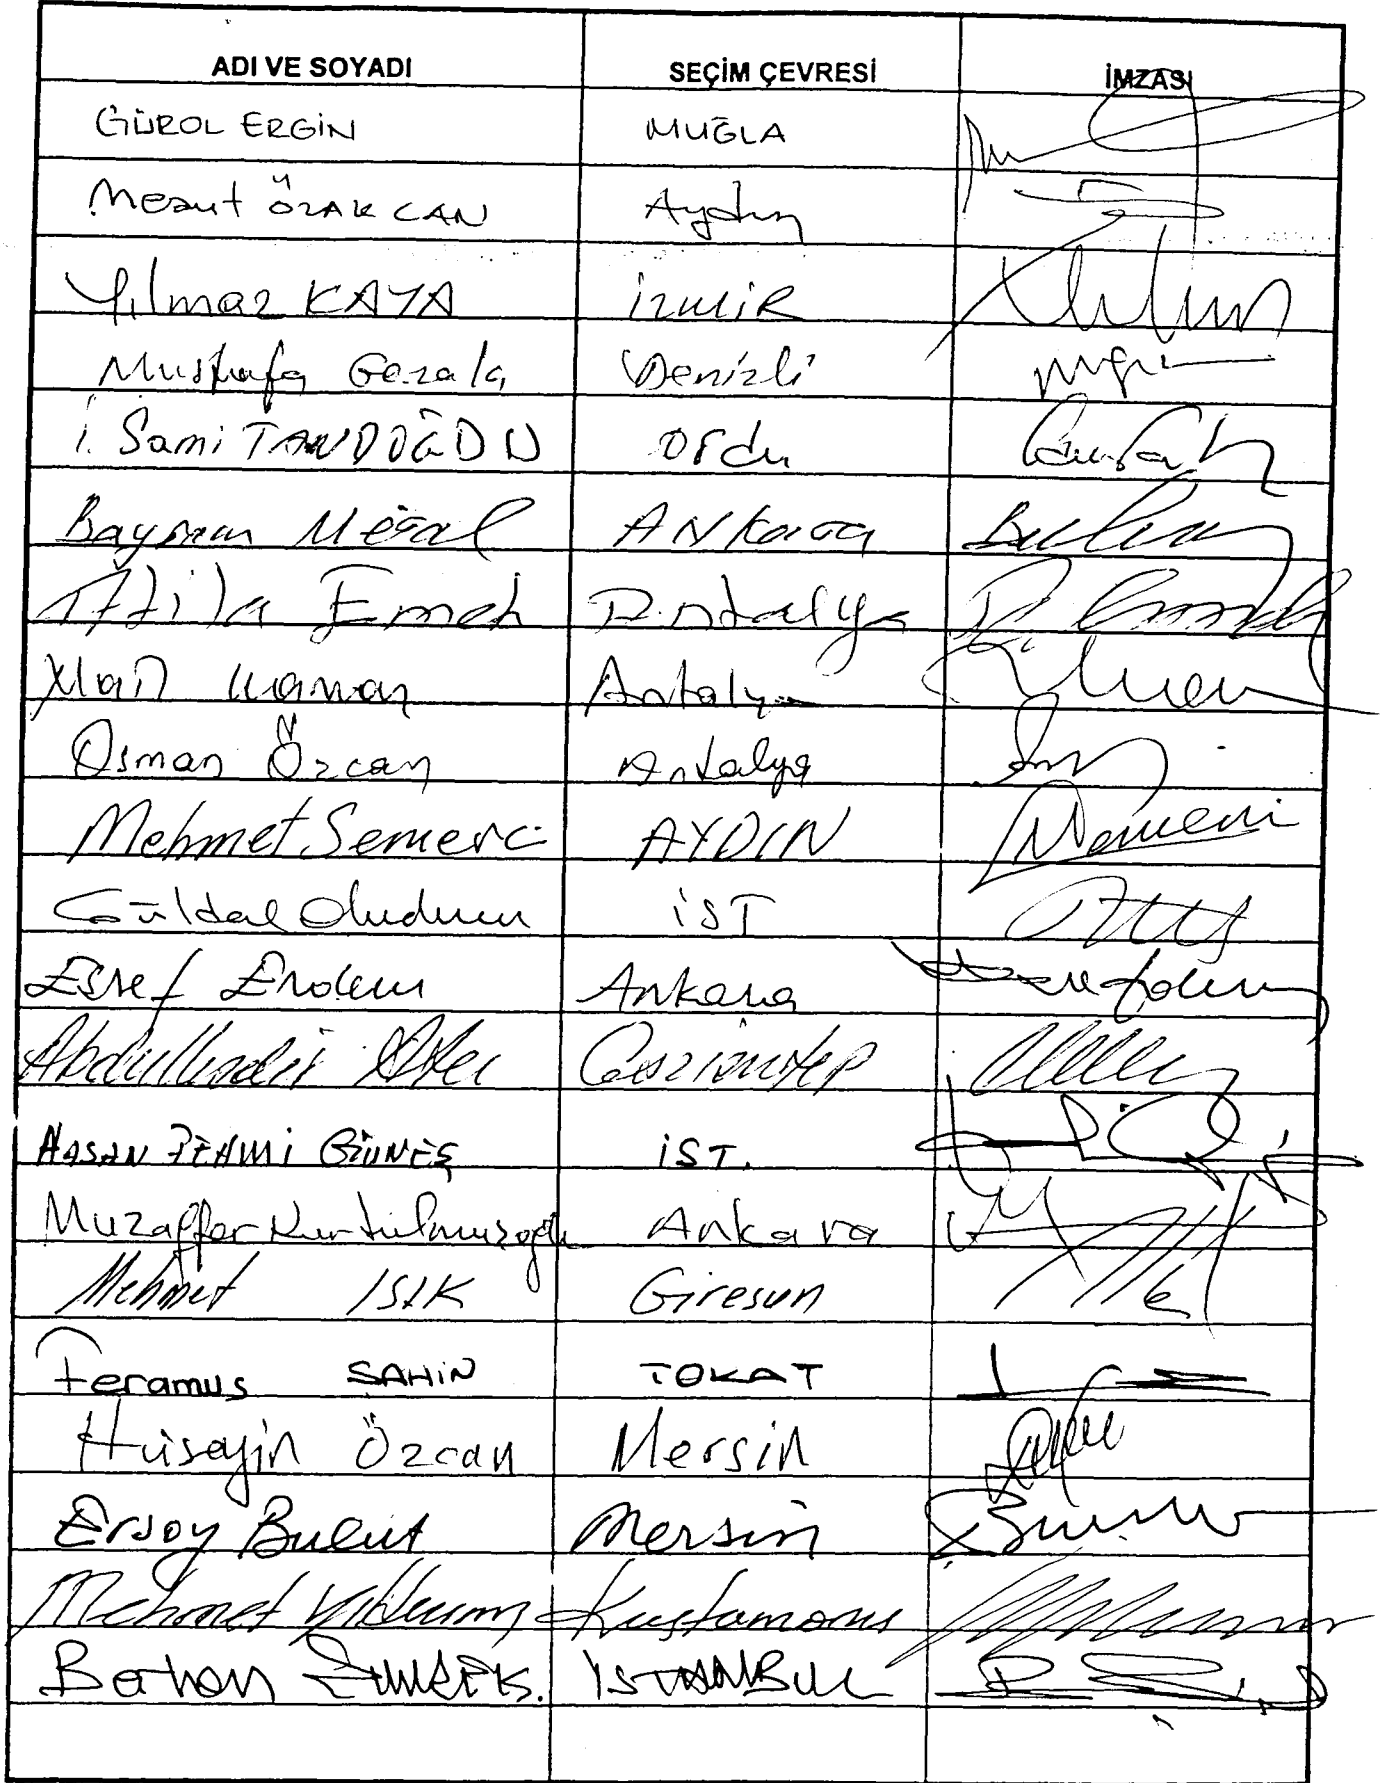 ADI VE SOYADI SEÇİM ÇEVRESİ İMZASI
GÜROL ERGİN MUĞLA
Mesut ÖZAKCAN Aydın
Yılmaz KAYA İZMİR
Mustafa Gazalcı Denizli
İ. Sami TANDOĞDU Ordu
Bayram Meral ANKARA
Atila Emek Antalya
Antalya
Osman Özcan Antalya
Mehmet Semerci AYDIN
Güldal Okuducu İST
Eşref Erdem Ankara
Gaziantep
HASAN FEHMİ GÜNEŞ İST.
Muzaffer Kurtulmuşoğlu Ankara
Mehmet IŞIK Giresun
Feramus ŞAHİN TOKAT
Hüseyin Özcan Mersin
Ersoy Bulut Mersin
Mehmet Yıldırım Kastamonu
İSTANBUL